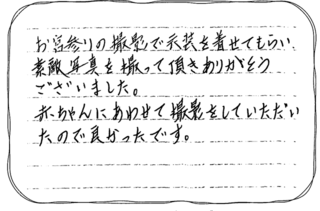 お宮参りの撮影で衣装を着せてもらい
素敵写真を撮って頂きありがとう
ございました。
赤ちゃんにあわせて撮影をしていただい
たので良かったです。